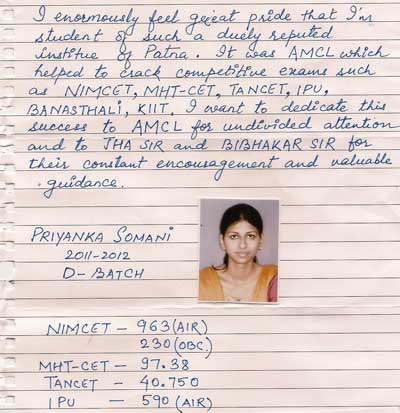 I enormously feel great pride that I'm
student of such a duely reputed
institue of Patna. It was AMCL which
helped to crack competitive exams such
as NIMCET, MHT-CET, TANCET, IPU,
BANASTHALI, KIIT. I want to dedicate this
success to AMCL for undivided attention
and to JHA SIR and BIBHAKAR SIR for
their constant encouragement and valuable
guidance.
PRIYANKA SOMANI
2011-2012
D-BATCH
NIMCET - 963 (AIR)
230 (OBC)
MHT-CET - 97.38
TANCET - 40.750
IPU - 590 (AIR)